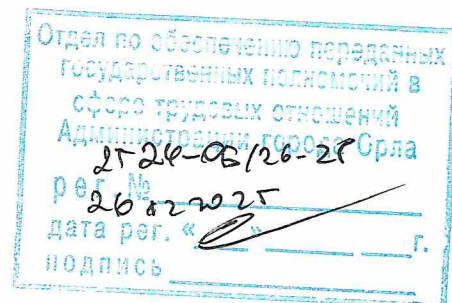 Отдел по обеспечению переданных
государственных полномочий в
сфере трудовых отношений
Администрации города Орла
рег. №
дата рег. « » г.
подпись